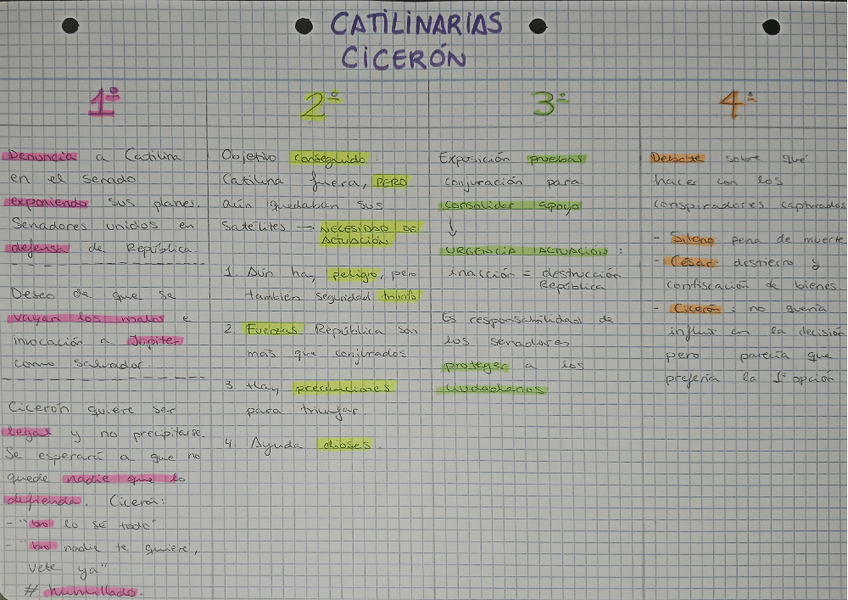 CATILINARIAS
CICERÓN
1ª
Denuncia a Catilina
en el senado
exponiendo sus planes.
Senadores unidos en
defensa de República.
Deseo de que se
vayan los malos e
invocación a Júpiter
como salvador.
Cicerón quiere ser
legal y no precipitarse.
Se esperará a que no
quede nadie que lo
defienda. Cicerón:
- "bro lo sé todo"
- "bro nadie te quiere,
vete ya"
# humillado.
2ª
Objetivo conseguido:
Catilina fuera, PERO
aún quedaban sus
satélites → NECESIDAD DE
ACTUACIÓN
1. Aún hay peligro, pero
también seguridad triunfo
2. Fuerzas República son
más que conjurados
3. Hay precauciones
para triunfar
4. Ayuda dioses
3ª
Exposición pruebas
conjuración para
consolidar apoyo
↓
URGENCIA ACTUACIÓN:
inacción = destrucción
República
Es responsabilidad de
los senadores
proteger a los
ciudadanos
4ª
Debate sobre qué
hacer con los
conspiradores capturados
- Silano pena de muerte
- César destierro y
confiscación de bienes
- Cicerón: no quería
influir en la decisión
pero parecía que
prefería la 1ª opción